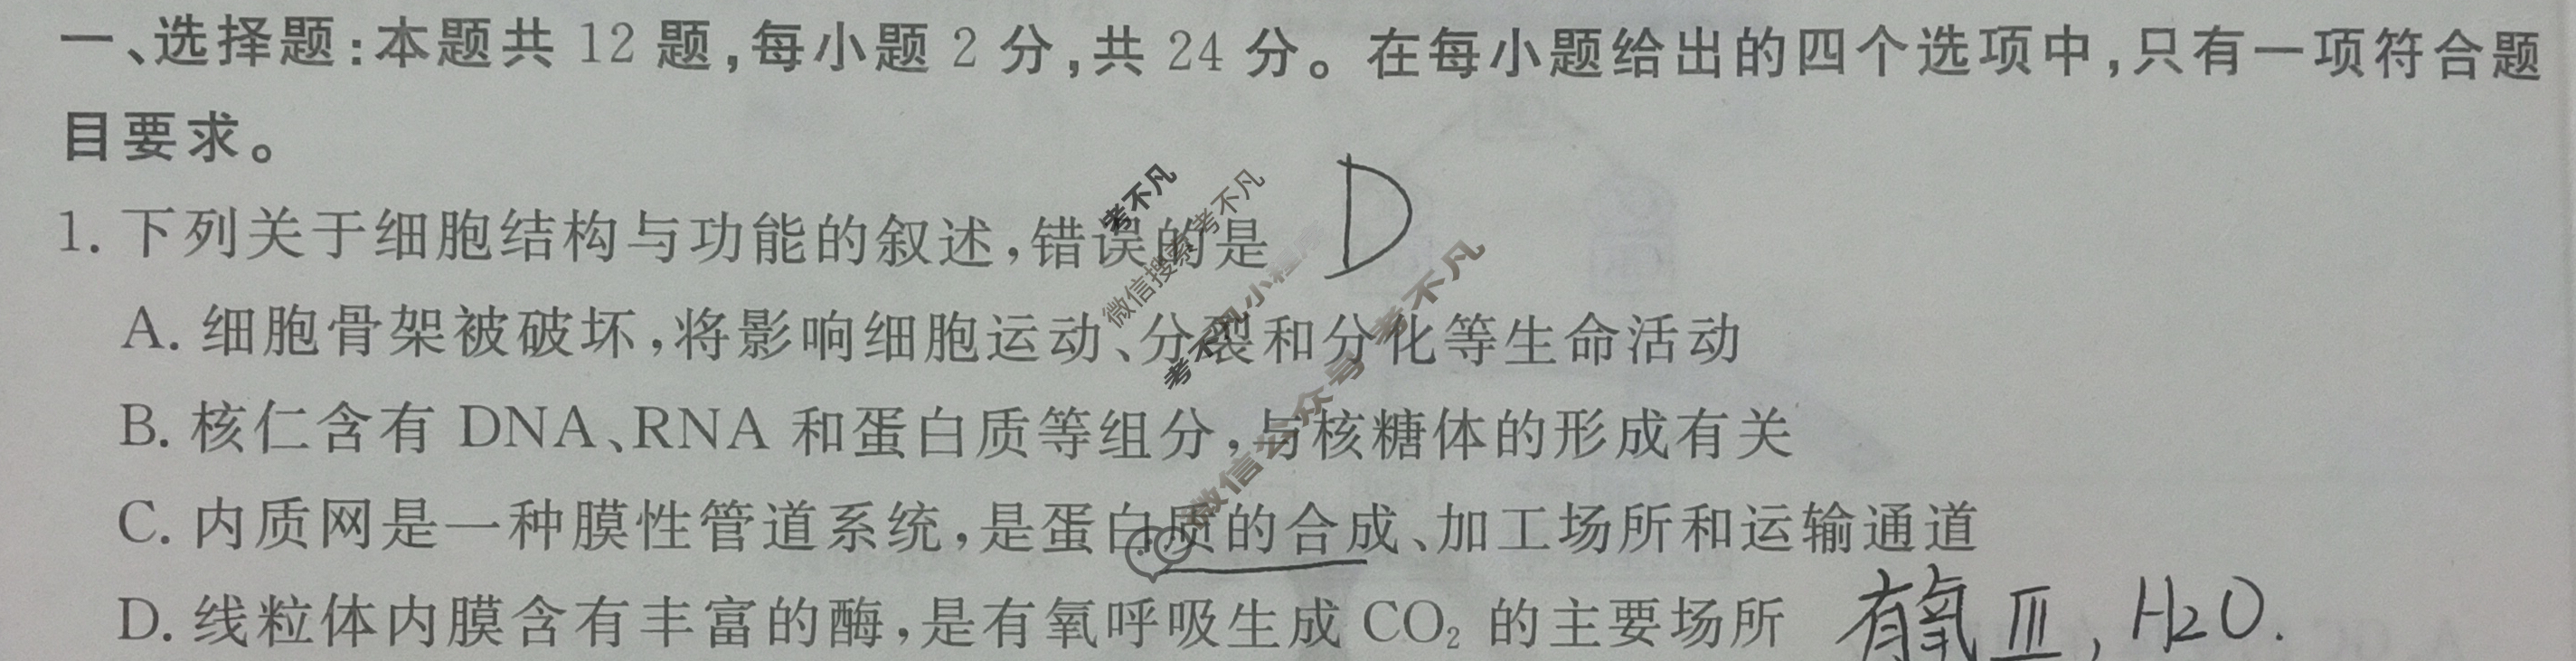 一、选择题:本题共 12 题,每小题 2 分,共 24 分。在每小题给出的四个选项中,只有一项符合题
目要求。
1. 下列关于细胞结构与功能的叙述,错误的是 D
A. 细胞骨架被破坏,将影响细胞运动、分裂和分化等生命活动
B. 核仁含有 DNA、RNA 和蛋白质等组分,与核糖体的形成有关
C. 内质网是一种膜性管道系统,是蛋白质的合成、加工场所和运输通道
D. 线粒体内膜含有丰富的酶,是有氧呼吸生成 CO₂ 的主要场所 有氧 III, H2O.
考不凡
微信搜索 考不凡
考不凡小程序
微信公众号 考不凡